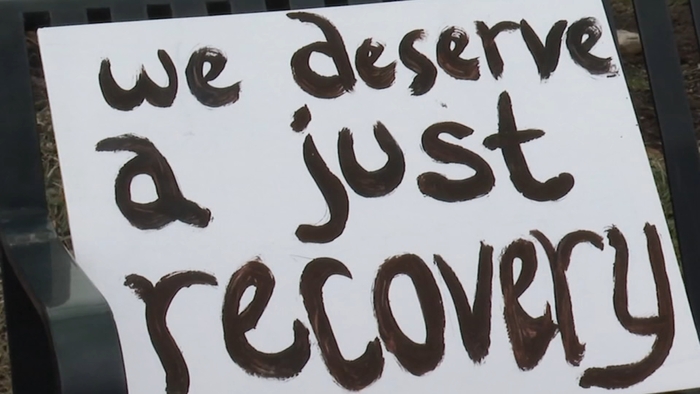 we deserve
a just
recovery